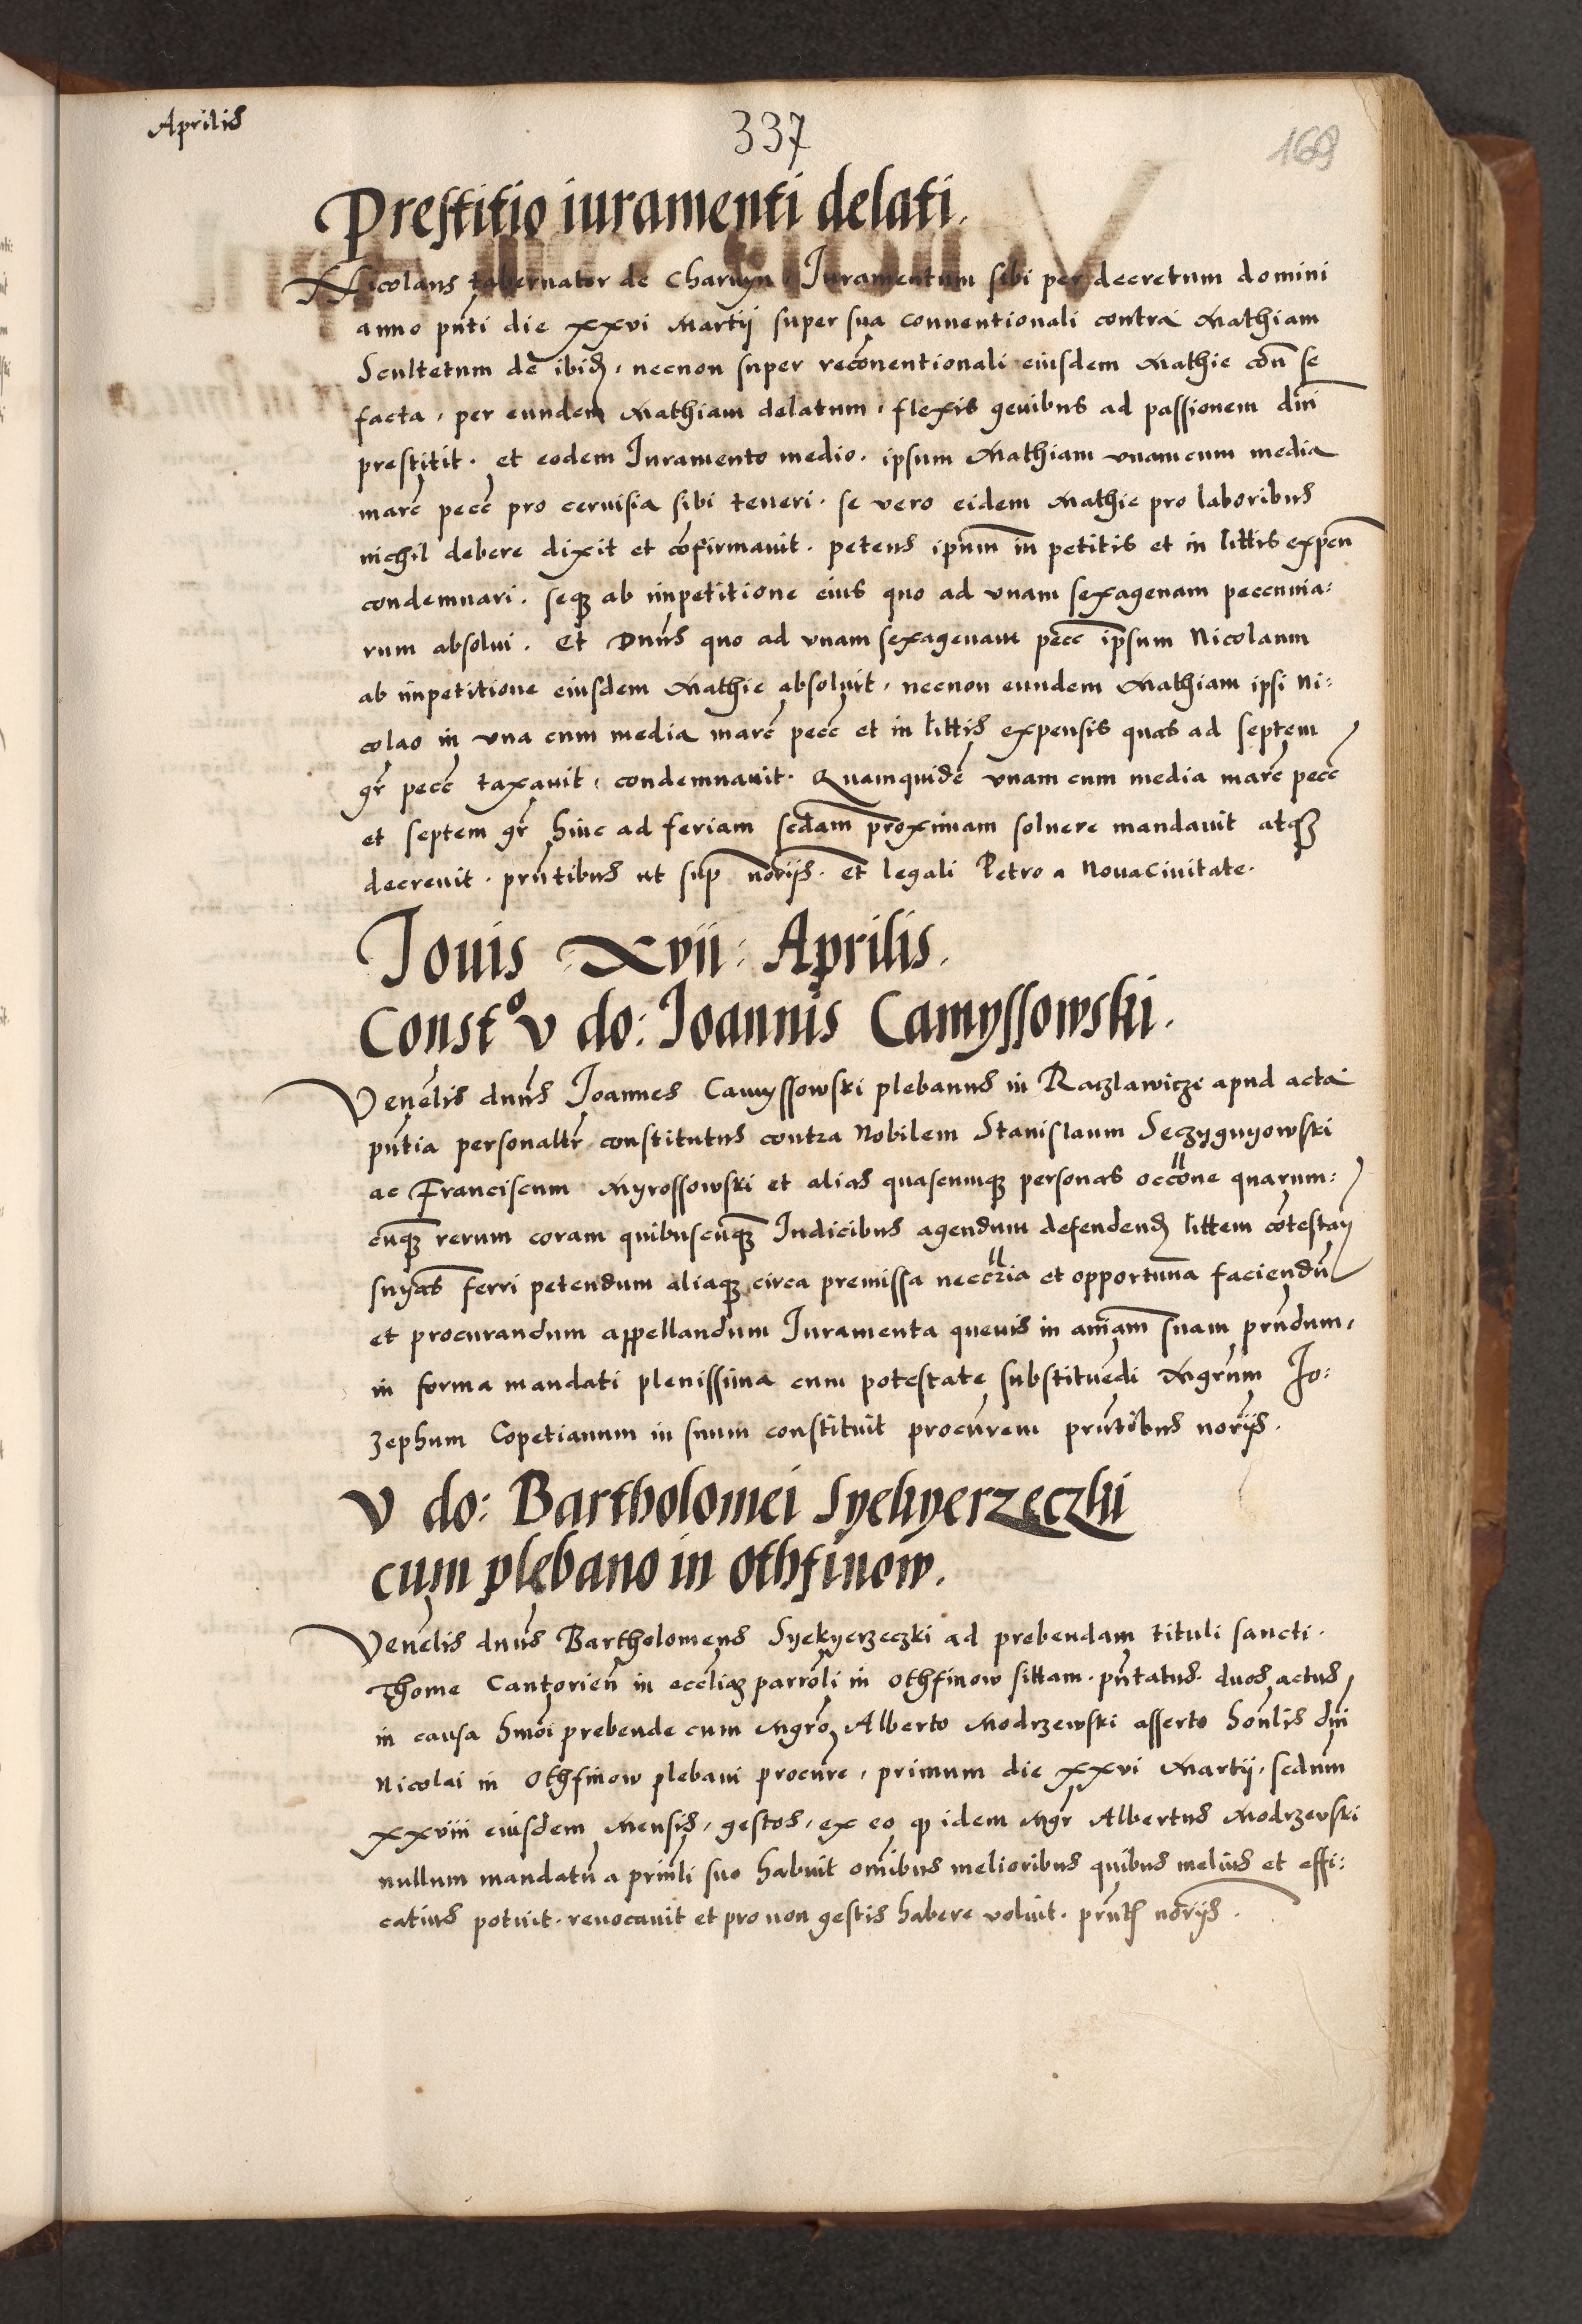 Aprilis
337
169
Prestitio iuramenti delati.
Nicolaus tabernator de Charwyn, Iuramentum sibi per decretum domini
anno pñti die xxvi Martij super sua conuentionali contra Mathiam
Scultetum de ibid, necnon super recōnentionali eiusdem Mathie cōn se
facta, per eundem Mathiam delatum, flexis genibus ad passionem dñi
prestitit. et eodem Iuramento medio. ipsum Mathiam vnam cum media
marc pecc pro ceruisia sibi teneri. se vero eidem Mathie pro laboribus
nichil debere dixit et cōfirmauit. petens ipsum in petitis et in littis expen
condemnari. seqz ab impetitione eius quo ad vnam sexagenam peccunia:
rum absolui. Et Dnus quo ad vnam sexagenam pecc ipsum Nicolaum
ab impetitione eiusdem Mathie absoluit, necnon eundem Mathiam ipsi Ni:
colao in vna cum media marc pecc et in littis expensis quas ad septem
gr pecc taxauit, condemnauit. Quamquidē vnam cum media marc pecc
et septem gr hinc ad feriam scdam proximam soluere mandauit atqz
decreuit. prñtibus ut sup norijs. et legali Petro a Nouaciuitate.
Iouis Xvii: Aprilis.
Constᵒ v do: Ioannis Camyssowski.
Venēlis dnus Ioannes Camyssowski plebanus in Raczlawicze apud acta
pñtia personaltr constitutus contra Nobilem Stanislaum Seczygnyowski
ac Franciscum Myrossowski et alias quascumqz personas occōne quarum:
cuqz rerum coram quibuscūqz Iudicibus agendum defendend littem cōtestan
snyas ferri petendum aliaqz circa premissa neccria et opportuna faciendū
et procurandum appellandum Iuramenta queuis in aīam suam prñdum,
in forma mandati plenissima cum potestate substituēdi Mgrum Io:
zephum Copetianum in suum constituit procurem prñtibus norijs.
V do: Bartholomei Syekyerzeczki
cum plebano in Othfinow.
Venēlis dnus Bartholomeus Syekyerzeczki ad prebendam tituli sancti
Thome Cantorien in eccliaz parroli in Othfinow sittam. pñtatus. duos actus
in causa hmōi prebende cum Mgro Alberto Modrzewski asserto honlis dni
Nicolai in Othfinow plebani procure, primum die xxvi Martij, scdum
xxviii eiusdem Mensis, gestos, ex eo qp idem Mgr Albertus Modrzevski
nullum mandatū a prinli suo habuit omibus melioribus quibus melius et effi:
catius potuit. reuocauit et pro non gestis habere voluit. prñt norijs.